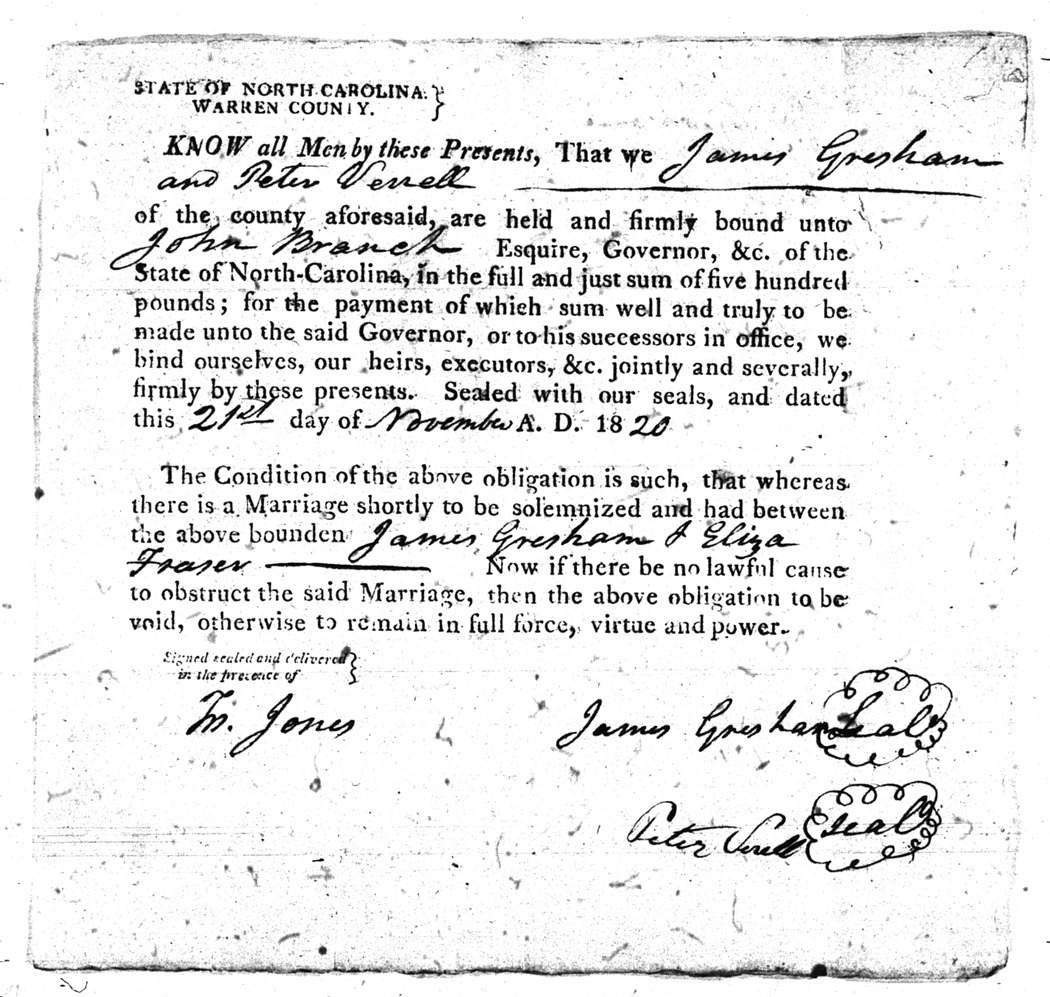 STATE OF NORTH-CAROLINA. }
WARREN COUNTY.
KNOW all Men by these Presents, That we James Gresham
and Peter Verrell
of the county aforesaid, are held and firmly bound unto
John Branch Esquire, Governor, &c. of the
State of North-Carolina, in the full and just sum of five hundred
pounds; for the payment of which sum well and truly to be
made unto the said Governor, or to his successors in office, we
bind ourselves, our heirs, executors, &c. jointly and severally,
firmly by these presents. Sealed with our seals, and dated
this 21st day of November A. D. 1820
The Condition of the above obligation is such, that whereas
there is a Marriage shortly to be solemnized and had between
the above bounden James Gresham & Eliza
Fraser Now if there be no lawful cause
to obstruct the said Marriage, then the above obligation to be
void, otherwise to remain in full force, virtue and power.
Signed sealed and delivered }
in the presence of
Jones James Gresham Seal
Peter Verell seal